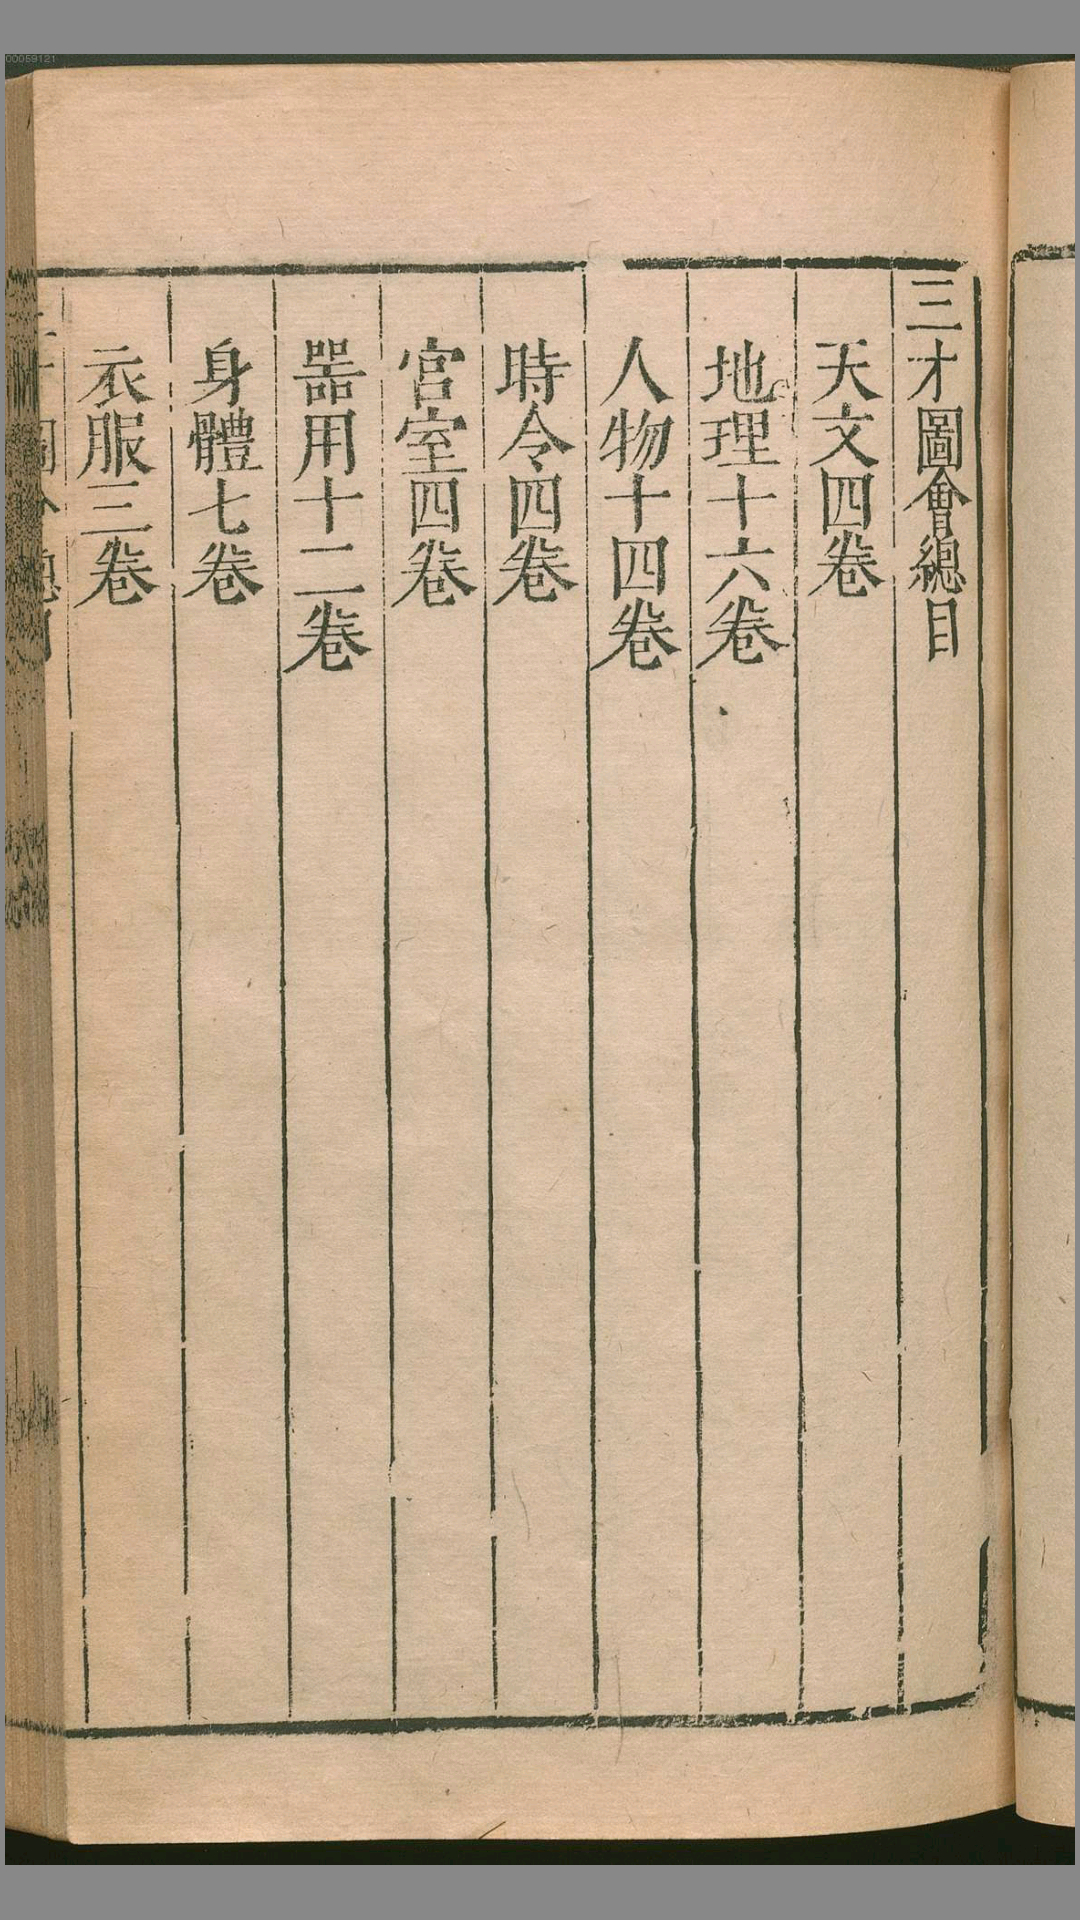 00059121
三才圖會總目
天文四卷
地理十六卷
人物十四卷
時令四卷
宮室四卷
噐用十二卷
身體七卷
衣服三卷